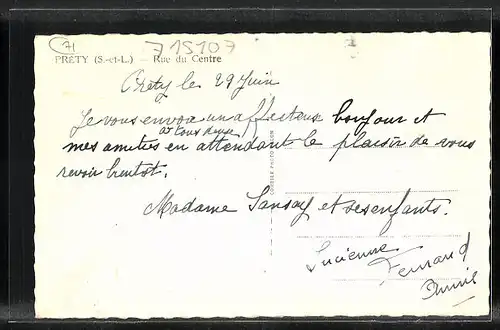 71
715107
PRÉTY (S.-et-L.) — Rue du Centre
Préty le 29 Juin
Je vous envoie un affectueux bonjour et
à tous deux
mes amitiés en attendant le plaisir de vous
revoir bientot.
Madame Sansoy et ses enfants.
Lucienne
Fernand